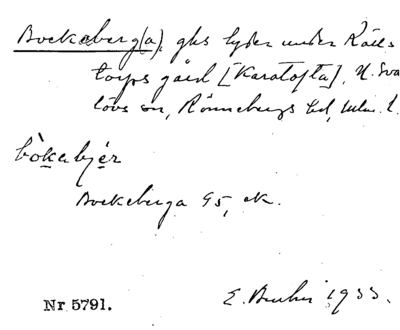 Bockeberg(a), gds lyder under Källs
torps gård [Karatofta], N. Sva
lövs sn, Rönnebergs hd, Malm. l.
bòkabjér
Bockeberga 95, ek.
E. 1933.
Nr 5791.